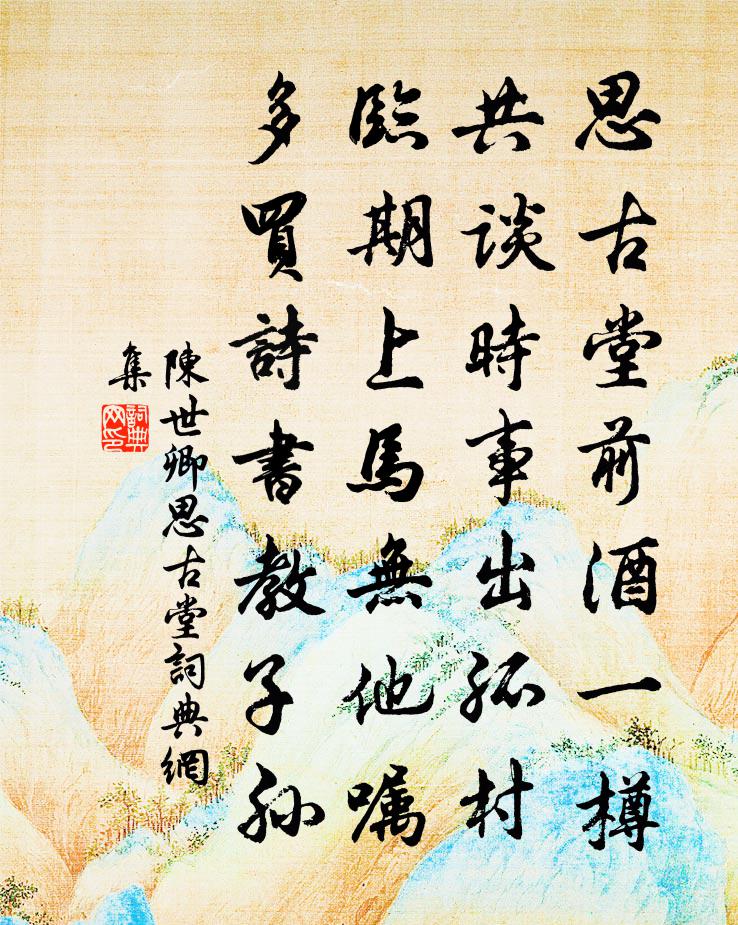 思古堂前酒一樽
共談時事出孤村
臨期上馬無他嘱
多買詩書教子孫
陳世卿思古堂詞典網
集
詞典
网印